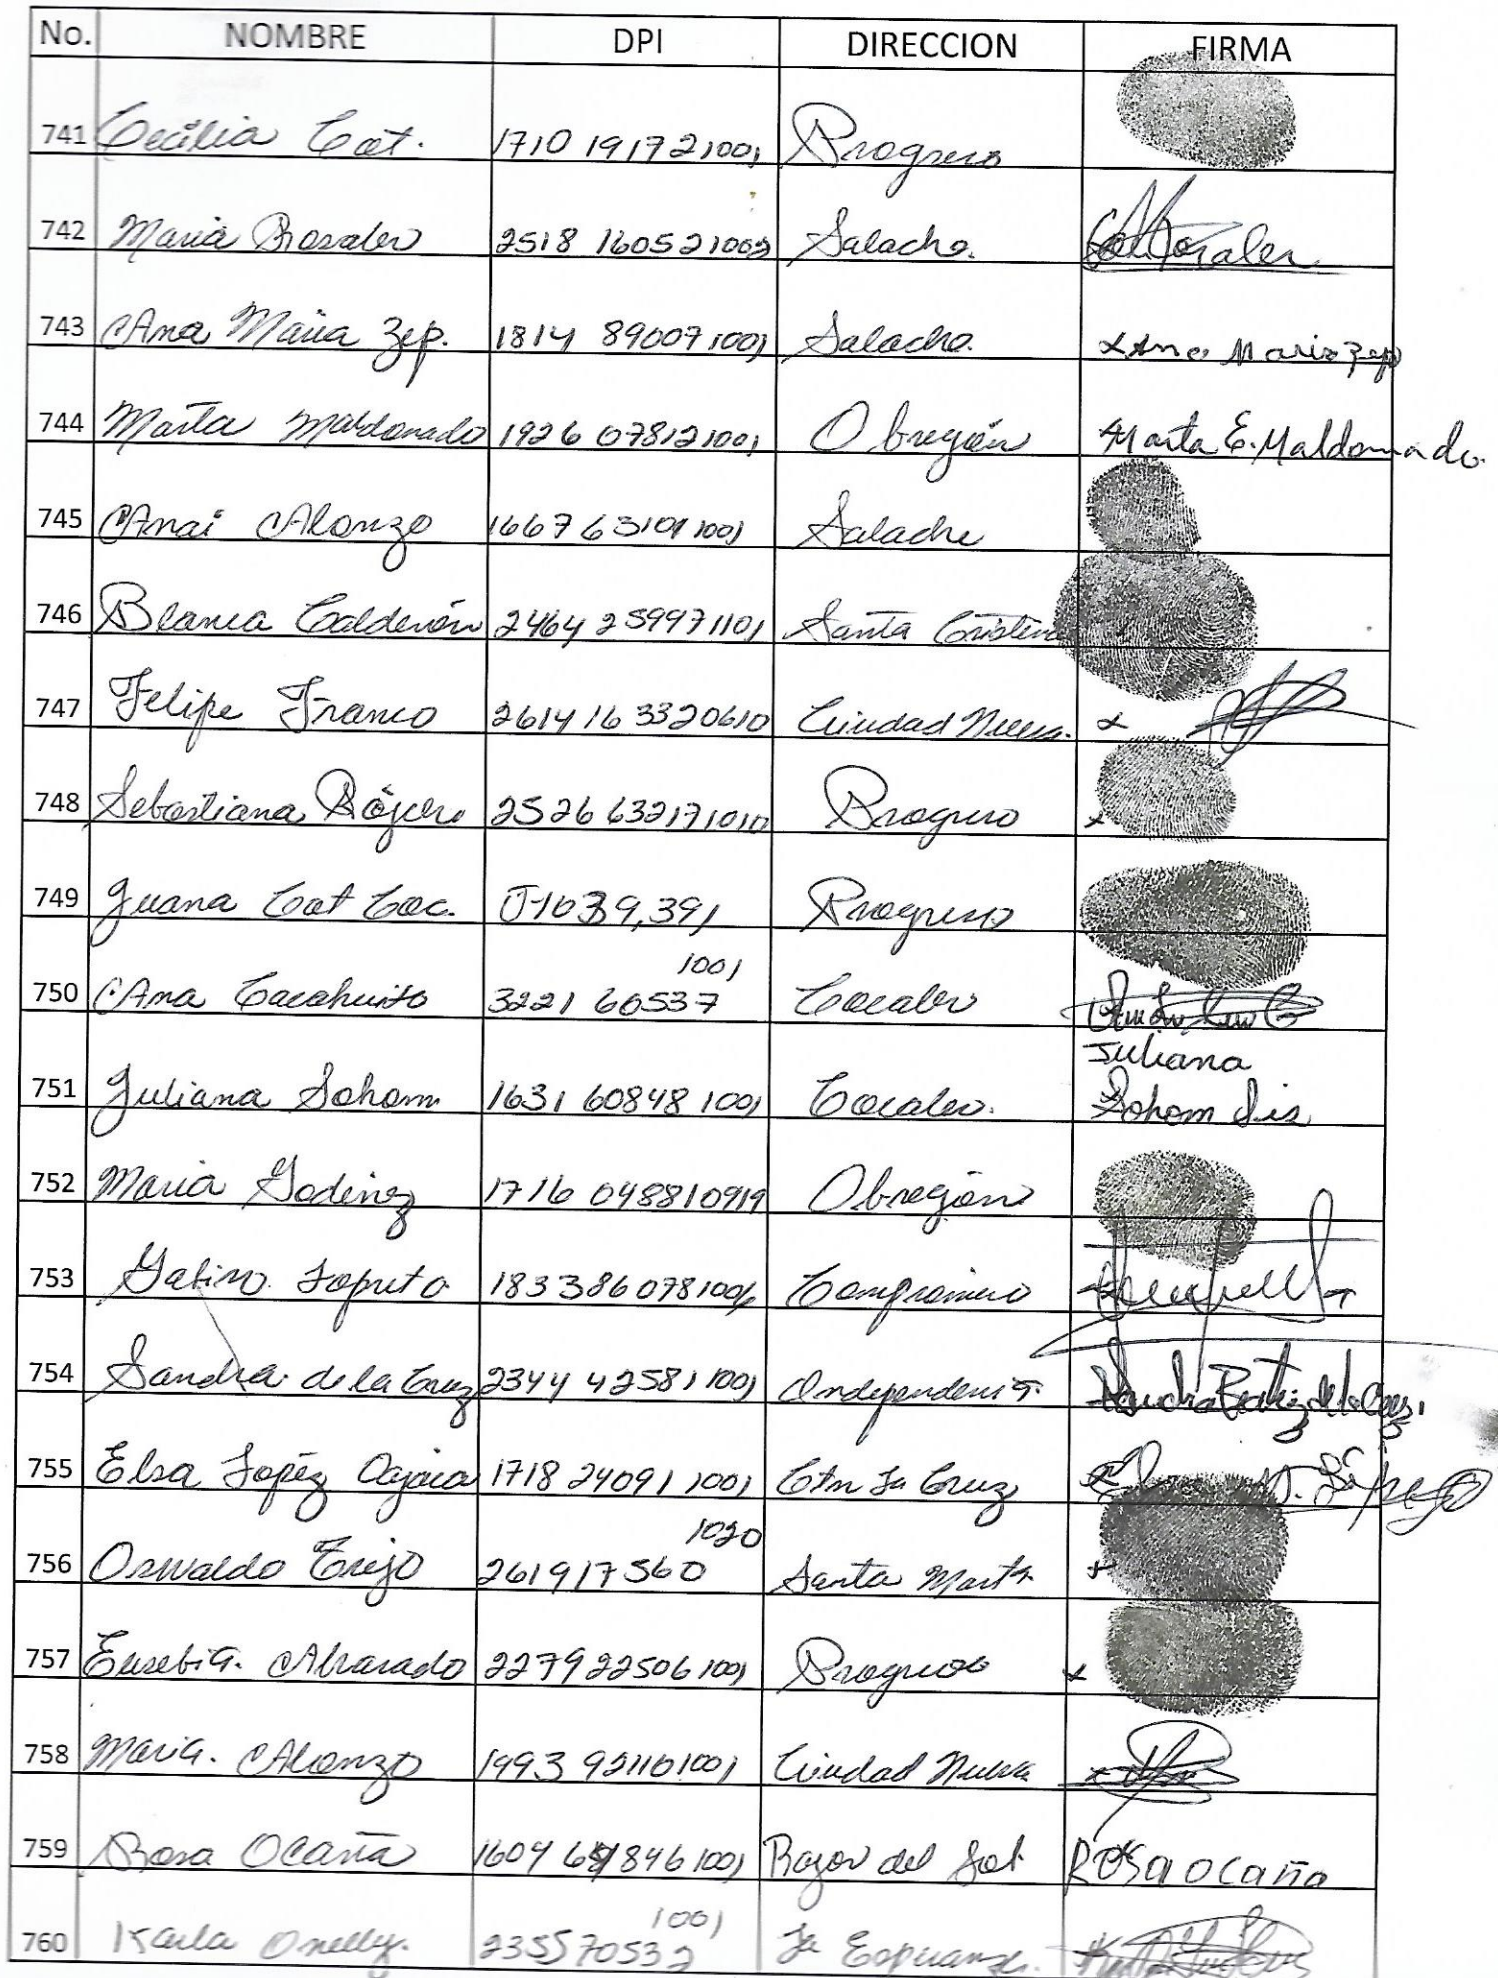 No. NOMBRE DPI DIRECCION FIRMA
741 Cecilia Cot. 1710 19172 1001 Progreso
742 Maria Rosales 2518 16052 1002 Salache. Rosales
743 Ana Maria Zep. 1814 89007 1001 Salache. x Ana Maria Zep
744 Marta Maldonado 1926 07812 1001 Obregón Marta E. Maldonado.
745 Anai Alonzo 1667 63101 1001 Salache
746 Blanca Calderón 2464 25997 1101 Santa Cristina
747 Felipe Franco 2614 16 332 0610 Ciudad Nueva. x
748 Sebastiana 2526 63217 1010 Progreso x
749 Juana Cot Coc. Progreso
750 Ana Cacahuito 3221 60537 1001 Cocales
751 Juliana Sohom 1631 60848 1001 Cocales. Juliana
Sohom Sis
752 Maria Godinez 1716 04881 0919 Obregón
753 1833 86078 1006 Compromiso
754 Sandra de la Cruz 2344 42581 1001 Independencia. Sandra Beatriz de la Cruz
755 Elsa López 1718 24091 1001 La Cruz López
756 Oswaldo Trejo 2619 17560 1020 Santa Marta x
757 Eusebia. Alvarado 2279 22506 1001 Progreso x
758 Maria. Alonzo 1993 92110 1001 Ciudad Nueva
759 Rosa Ocaña 1604 846 1001 Rayos del Sol Rosa ocaña
760 Karla Onelly. 2355 70532 1001 La Esperanza.